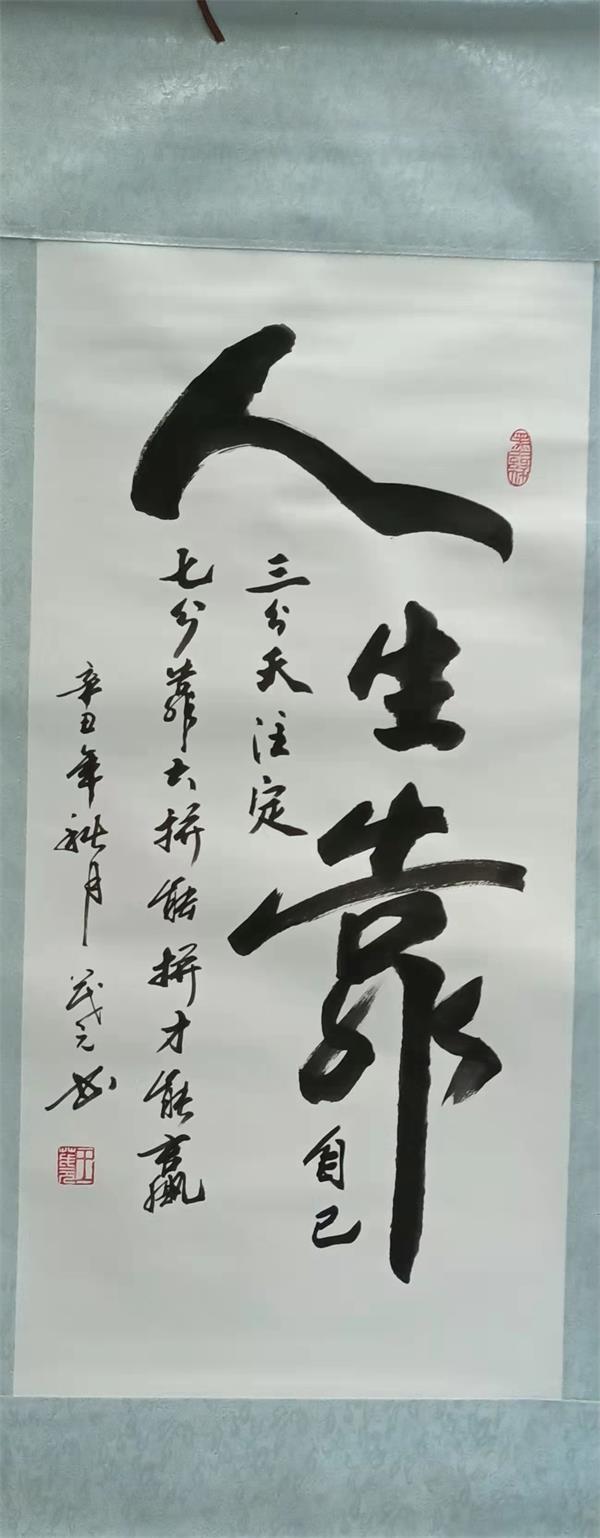 人生靠自己
三分天注定
七分靠去拼能拼才能赢
辛丑年秋月 茂元书